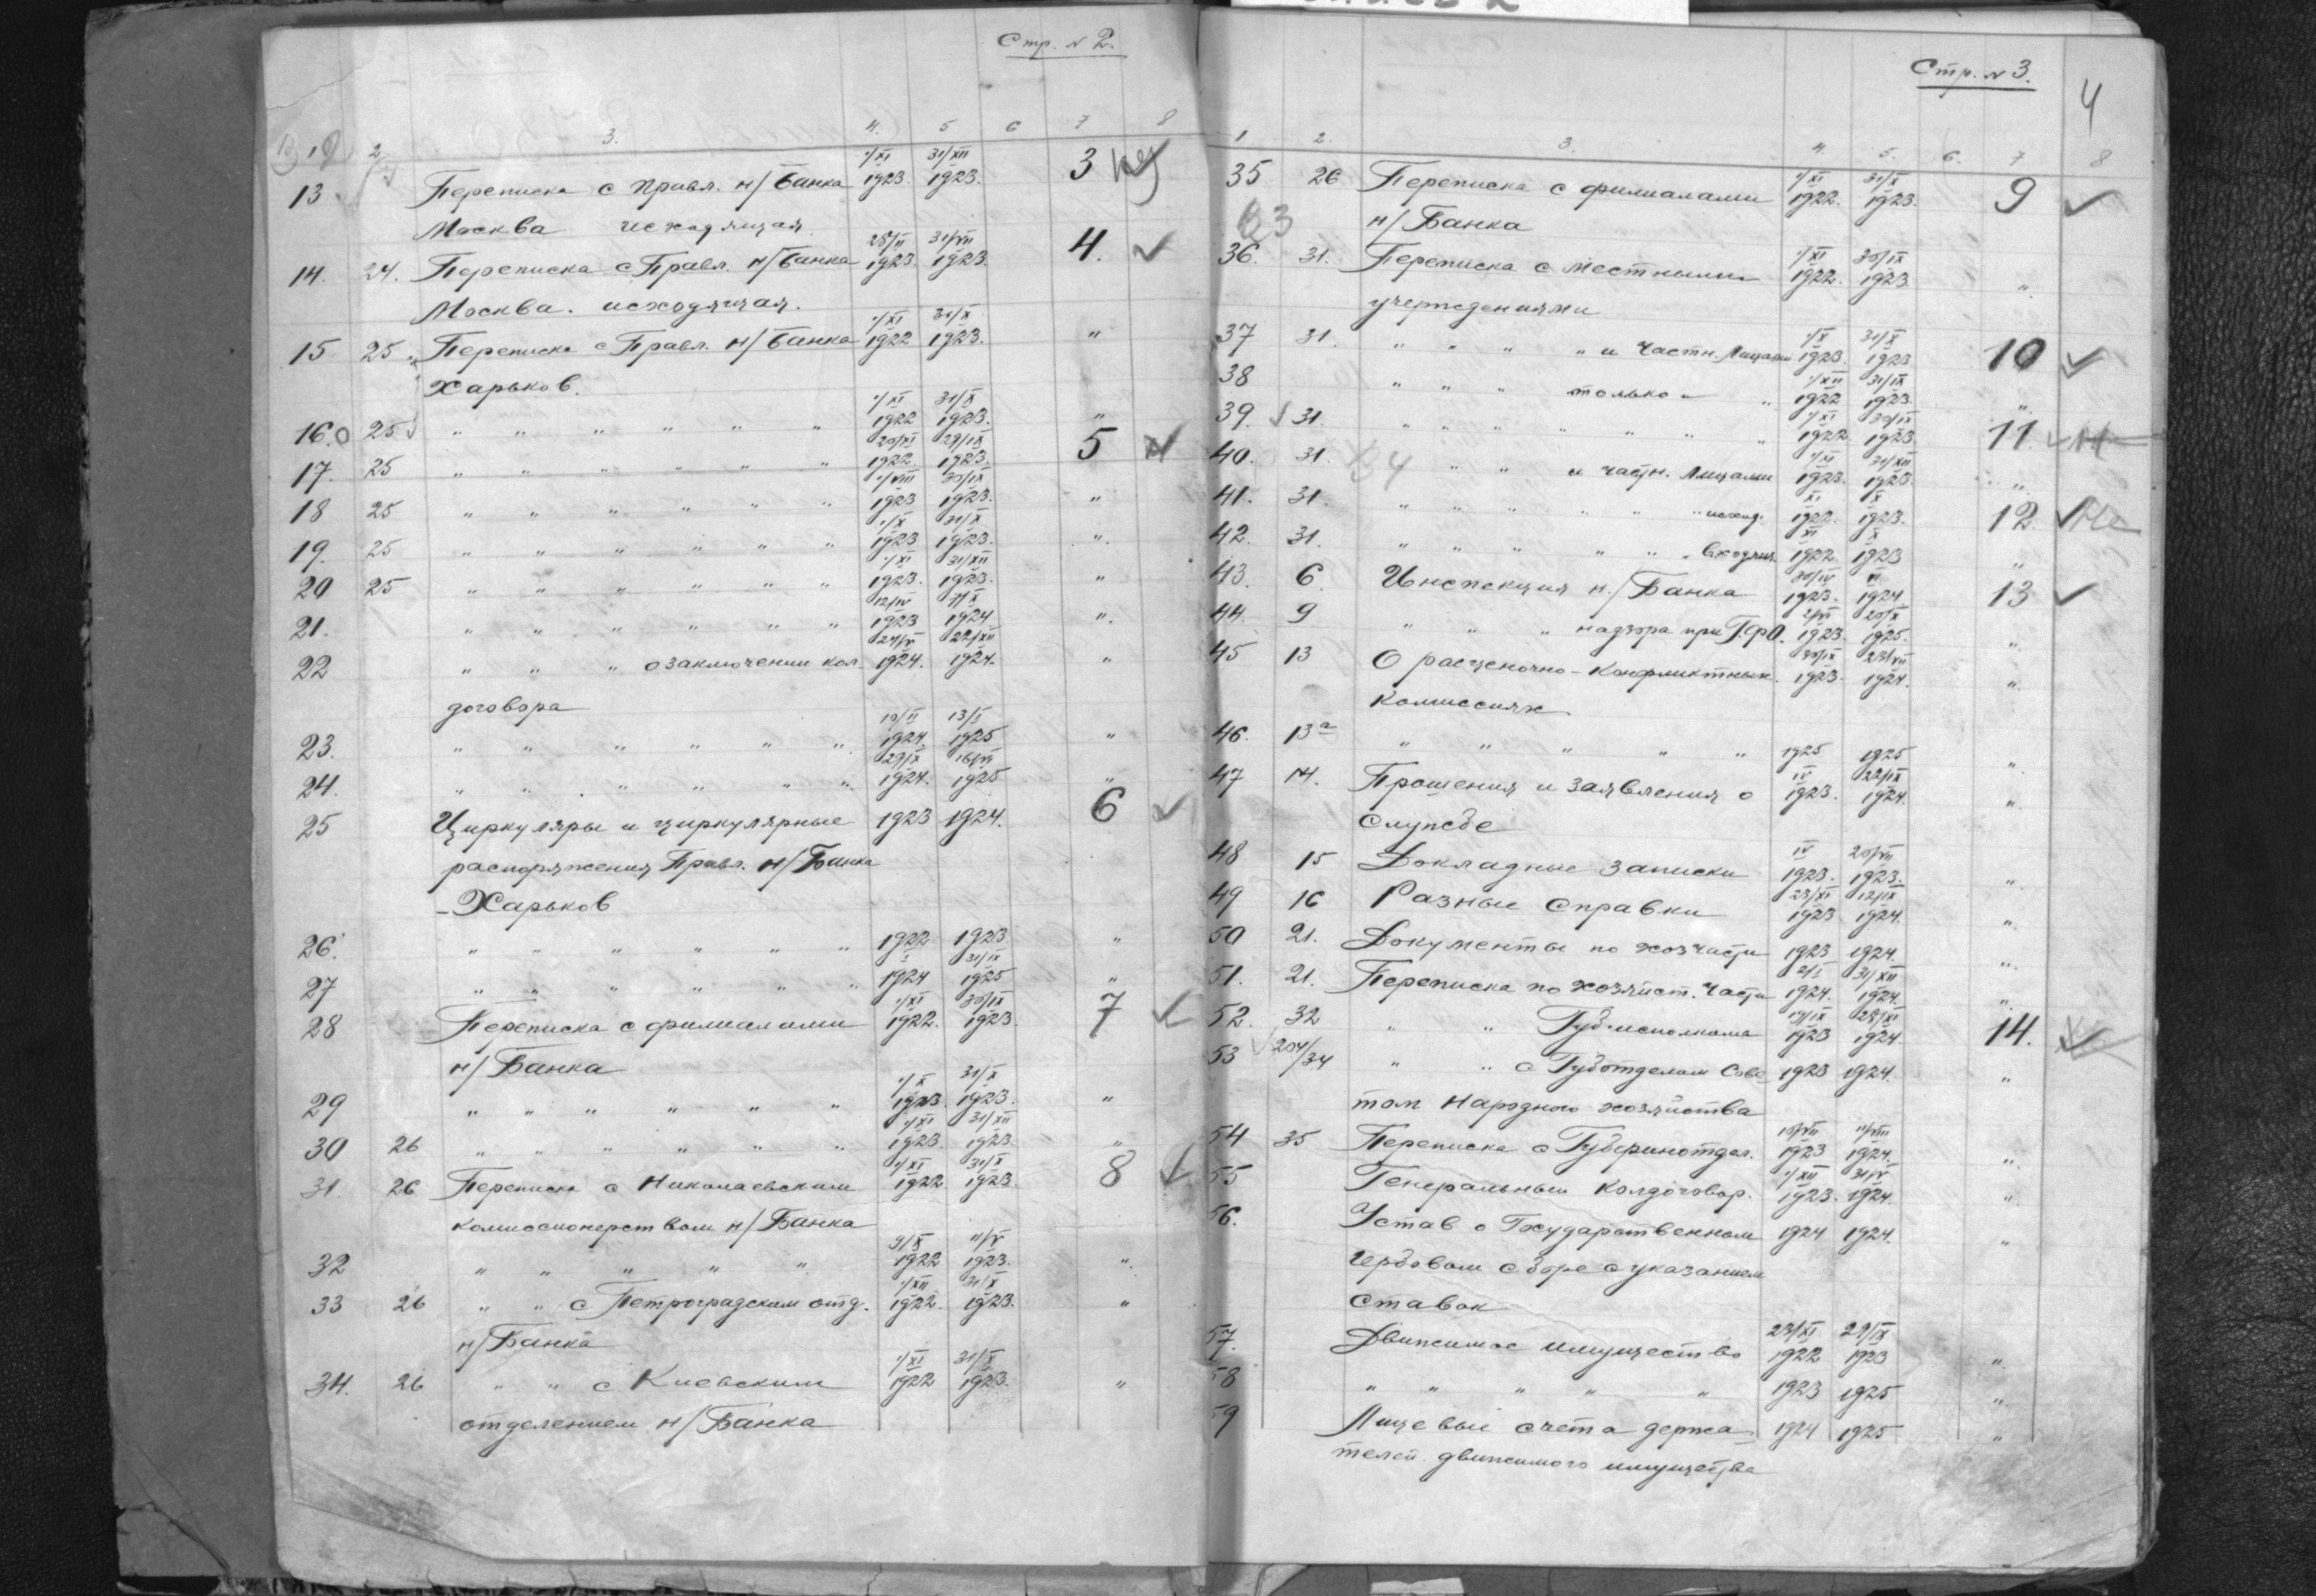 Стр. № 2.
1 2 3. 4. 5 6 7 8
1/XI 31/XII
13 Переписка с Правл. н/Банка 1923 1923. 3
Москва исходящая
28/II 31/VII
14. 24. Переписка с Правл. н/Банка 1923. 1923. 4.
Москва. исходящая.
1/XI 31/X
15 25 Переписка с Правл. н/Банка 1922 1923. "
Харьков.
1/XI 31/X
16. 25 " " " " " " 1922 1923. "
20/XI 29/IX
17. 25 " " " " " " 1922 1923. 5
1/VIII 30/IX
18 25 " " " " " " 1923 1923. "
1/X 31/X
19. 25 " " " " " " 1923 1923. "
1/XI 31/XII
20 25 " " " " " " 1923. 1923. "
12/IV
21. " " " " " " 1923 1924 "
22/XII
22 " " " о заключении кол 1924. 1924. "
договора
10/II 13/I
23. " " " " " " 1924. 1925 "
29/IX
24. " " " " " " 1924. 1925 "
25 Циркуляры и циркулярные 1923 1924. 6
распоряжения Правл. н/Банка
-Харьков
26. " " " " " " 1922 1923. "
I 31/IX
27 " " " " " " 1924 1925 "
1/XI 30/IX
28 Переписка с филиалами 1922. 1923. 7
н/Банка
1/X 31/X
29 " " " " " " 1923. 1923. "
1/XI 31/XII
30 26 " " " " " " 1923. 1923 "
1/XI 31/X
31. 26 Переписка с Николаевским 1922 1923 8
комиссионерством н/Банка
9/X 11/V
32 " " " " " 1922 1923. "
1/XII 31/X
33 26 " " с Петроградским отд. 1922. 1923. "
н/Банка
1/XI 31/X
34. 26 " " с Киевским 1922 1923. "
отделением н/Банка
Стр. № 3.
4
1 2. 3. 4. 5. 6. 7 8
1/XI 31/X
35 26 Переписка с филиалами 1922. 1923. 9
н/Банка
1/XI 30/IX
36. 31. Переписка с местными 1922. 1923 "
учреждениями
1/X 31/X
37 31. " " " " и частн. Лицами 1923. 1923 10
1/XII 31/IX
38 " " " только " " 1922 1923. "
1/XI 30/IX
39. 31. " " " " " " " 1922 1923. 11.
1/XI 31/XII
40. 31. " " " и частн. Лицами 1923. 1923. "
XI X
41. 31. " " " " " " исход. 1922. 1923. 12.
XI X
42. 31. " " " " " " входящ. 1922 1923 "
30/IV VI
43. 6. Инспекция н./Банка 1923. 1924. 13
20/X
44. 9 " " " надзора при Г.Ф.О. 1923. 1925. "
30/IX 23/VII
45 13 О расценочно-конфликтных 1923. 1924. "
комиссиях
46. 13а " " " " " 1925 1925 "
IV 22/IX
47 14. Прошения и заявления о 1923. 1924. "
службе
IV 20/VII
48 15 Докладные записки 1923. 1923. "
23/XI 12/IX
49 16 Разные справки 1923 1924. "
50 21. Документы по хозчасти 1923 1924. "
2/I 31/XII
51. 21. Переписка по хозяйст. части 1924. 1924. "
28/XI
52. 32 " " Губисполкома 1923 1924. 14.
53 204/34 " " с Губотделом Сове- 1923 1924. "
том Народного хозяйства
54 35 Переписка с Губфинотдел. 1923 1924. "
1/XII 31/V
55 Генеральный Колдоговор. 1923. 1924. "
56. Устав о Государственном 1924 1924. "
гербовом сборе с указанием
ставок
23/XI 29/IX
57. Движимое имущество 1922 1923 "
58 " " " " " 1923 1925 "
59 Лицевые счета держа- 1924 1925 "
телей движимого имущества